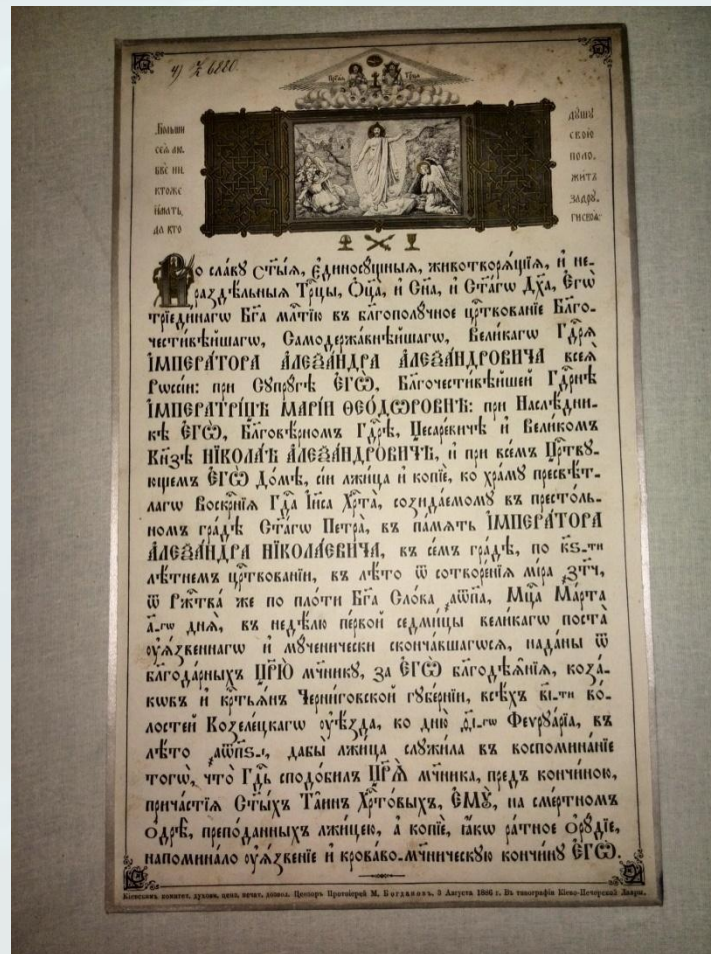 4) № 6820.
Больши
сея лю.
бве ни.
ктоже
имать,
да кто
душу
свою
поло.
житъ
задру.
ги своя.
Во славу Ст҃ы́я, Єдиносу́щныя, животворя́щїя, и не-
разде́льныя Трⷪ҇цы, Ѻц҃а̀, и Сн҃а, и Ст҃а́гѡ Дх҃а, Єгѡ̀
трїеди́нагѡ Бг҃а млⷭ҇тїю въ бл҃гополу́чное црⷭ҇твованїе Бл҃го-
чести́вѣйшагѡ, Самодержа́внѣйшагѡ, Вели́кагѡ Гдⷭ҇ря
ІМПЕРА́ТОРА АЛЕѮА́НДРА АЛЕѮА́НДРОВИЧА всея̀
Рѡссі́и: при Супру́гѣ ЄГѠ̀, Бл҃гочести́вѣйшей Гдⷭ҇рнѣ
ІМПЕРАТРІ́ЦѢ МАРІ́И ѲЕО́ДѠРОВНѢ: при Наслѣ́дни-
кѣ ЄГѠ̀, Бл҃говѣ́рномъ Гдⷭ҇рѣ, Цесаре́вичѣ и Вели́комъ
Кн҃зѣ НІКОЛА́Ѣ АЛЕѮА́НДРОВИЧѢ, и при все́мъ Црⷭ҇тву-
ющемъ ЄГѠ̀ До́мѣ, сїи лжи́ца и копїѐ, ко хра́му пресвѣ́т-
лагѡ Воскрⷭ҇нїя Гдⷭ҇а Іи҃са Хрⷭ҇та̀, созида́емому въ престо́ль-
номъ гра́дѣ Ст҃а́гѡ Петра̀, въ па́мять ІМПЕРА́ТОРА
АЛЕѮА́НДРА НІКОЛА́ЕВИЧА, въ се́мъ гра́дѣ, по к҃ѕ.-ти
лѣ́тнемъ црⷭ҇твованїи, въ лѣ́то ѿ сотворе́нїя мі́ра ҂зт҃ч,
ѿ Ржⷭ҇тва̀ же по пло́ти Бг҃а Сло́ва ҂аѡп҃а, Мцⷭ҇а Ма́рта
а҃.-гѡ дня̀, въ недѣ́лю пе́рвой седми́цы вели́кагѡ поста̀
ᲂу҆я́звеннагѡ и му́ченически сконча́вшагѡся, нада́ны ѿ
благода́рныхъ ЦР҃Ю̀ мч҃нику, за ЄГѠ̀ бл҃годѣѧ̑нїя, коза́-
ковъ и крⷭ҇тья́нъ Черни́говской губе́рнїи, всѣ́хъ в҃і.-ти во́-
лостей Козеле́цкагѡ ᲂу҆ѣ́зда, ко дню̀ Февруа́рїа, въ
лѣ́то ҂аѡп҃ѕ.-е, дабы̀ лжи́ца служи́ла въ воспомина́нїе
тогѡ̀, что̀ Гдⷭ҇ь сподо́билъ ЦР҃Я̀ мч҃ника, предъ кончи́ною,
прича́стїя Ст҃ы́хъ Та́инъ Хрⷭ҇то́выхъ, ЄМꙊ̀, на сме́ртномъ
ѻдрѣ̀, препо́данныхъ лжи́цею, а копїѐ, ꙗ҆́кѡ ра́тное ѻру́дїе,
напомина́ло ᲂу҆язве́нїе и крова́во-мч҃ническую кончи́ну ЄГѠ̀.
Кіевскимъ комитет. духовн. ценз. печат. дозвол. Цензоръ Протоіерей М. Богдановъ. 3 Августа 1886 г. Въ типографіи Кіево-Печерской Лавры.